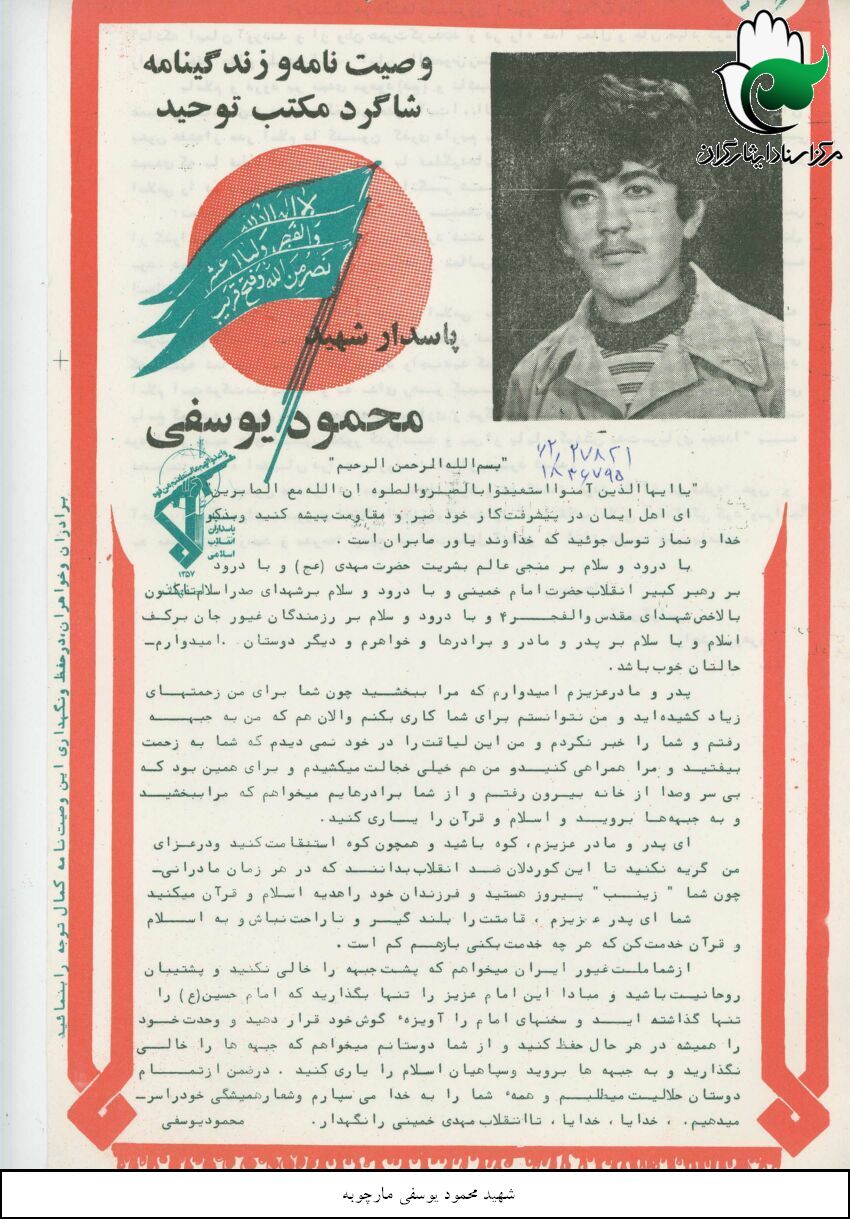 مرکز اسناد ایثارگران
وصیت نامه و زندگینامه
شاگرد مکتب توحید
لا اله الا الله
والفجر ولیال عشر
نصر من الله وفتح قریب
پاسدار شهید
محمود یوسفی
۷۲,۲۷۸۲۱
۱۸۳۶۷۹۵
"بسم الله الرحمن الرحیم"
"یا ایها الذین آمنوا استعینوا بالصبر والصلوه ان الله مع الصابرین"
ای اهل ایمان در پیشرفت کار خود صبر و مقاومت پیشه کنید و بذکر
خدا و نماز توسل جوئید که خداوند یاور صابران است .
با درود و سلام بر منجی عالم بشریت حضرت مهدی (عج) و با درود
بر رهبر کبیر انقلاب حضرت امام خمینی و با درود و سلام بر شهدای صدر اسلام تاکنون
بالاخص شهدای مقدس والفجر ۴ و با درود و سلام بر رزمندگان غیور جان برکف
اسلام و با سلام بر پدر و مادر و برادرها و خواهرم و دیگر دوستان . امیدوارم
حالتان خوب باشد .
پدر و مادر عزیزم امیدوارم که مرا ببخشید چون شما برای من زحمتهای
زیاد کشیده اید و من نتوانستم برای شما کاری بکنم والان هم که من به جبهه
رفتم و شما را خبر نکردم و من این لیاقت را در خود نمی دیدم که شما به زحمت
بیفتید و مرا همراهی کنید و من هم خیلی خجالت میکشیدم و برای همین بود که
بی سر وصدا از خانه بیرون رفتم و از شما برادرهایم میخواهم که مرا ببخشید
و به جبهه ها بروید و اسلام و قرآن را یاری کنید .
ای پدر و مادر عزیزم، کوه باشید و همچون کوه استقامت کنید و در عزای
من گریه نکنید تا این کوردلان ضد انقلاب بدانند که در هر زمان مادرانی
چون شما " زینب " پیروز هستید و فرزندان خود را هدیه اسلام و قرآن میکنید
شما ای پدر عزیزم ، قامتت را بلند گیر و ناراحت نباش و به اسلام
و قرآن خدمت کن که هر چه خدمت بکنی باز هم کم است .
از شما ملت غیور ایران میخواهم که پشت جبهه را خالی نکنید و پشتیبان
روحانیت باشید و مبادا این امام عزیز را تنها بگذارید که امام حسین(ع) را
تنها گذاشته اید و سخنهای امام را آویزهٔ گوش خود قرار دهید و وحدت خود
را همیشه در هر حال حفظ کنید و از شما دوستانم میخواهم که جبهه ها را خالی
نگذارید و به جبهه ها بروید وسپاهیان اسلام را یاری کنید . در ضمن از تمام
دوستان حلالیت میطلبم و همهٔ شما را به خدا می سپارم وشعار همیشگی خود را سر
میدهیم . ، خدایا ، خدایا ، تا انقلاب مهدی خمینی را نگهدار . محمود یوسفی
پاسداران
انقلاب
اسلامی
۱۳۵۷
برادران وخواهران،در حفظ ونگهداری این وصیت نامه کمال توجه را بنمائید
شهید محمود یوسفی مارچوبه